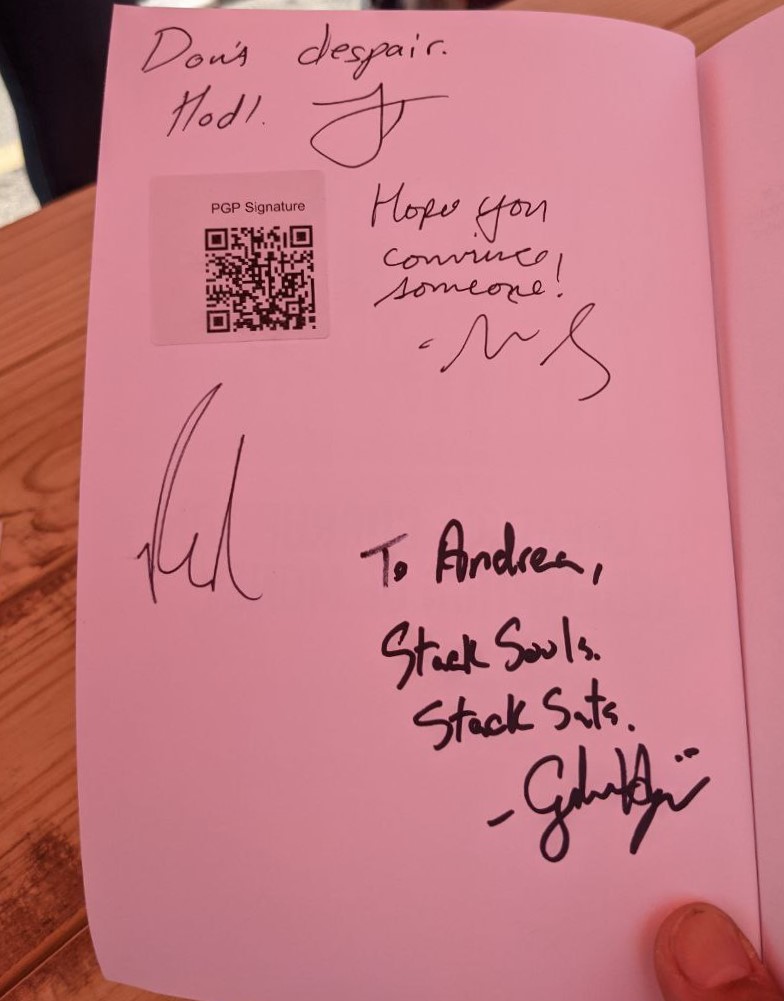 Don't despair.
Hodl.
PGP Signature
Hope you
convince
someone!
To Andrea,
Stack Souls.
Stack Sats.